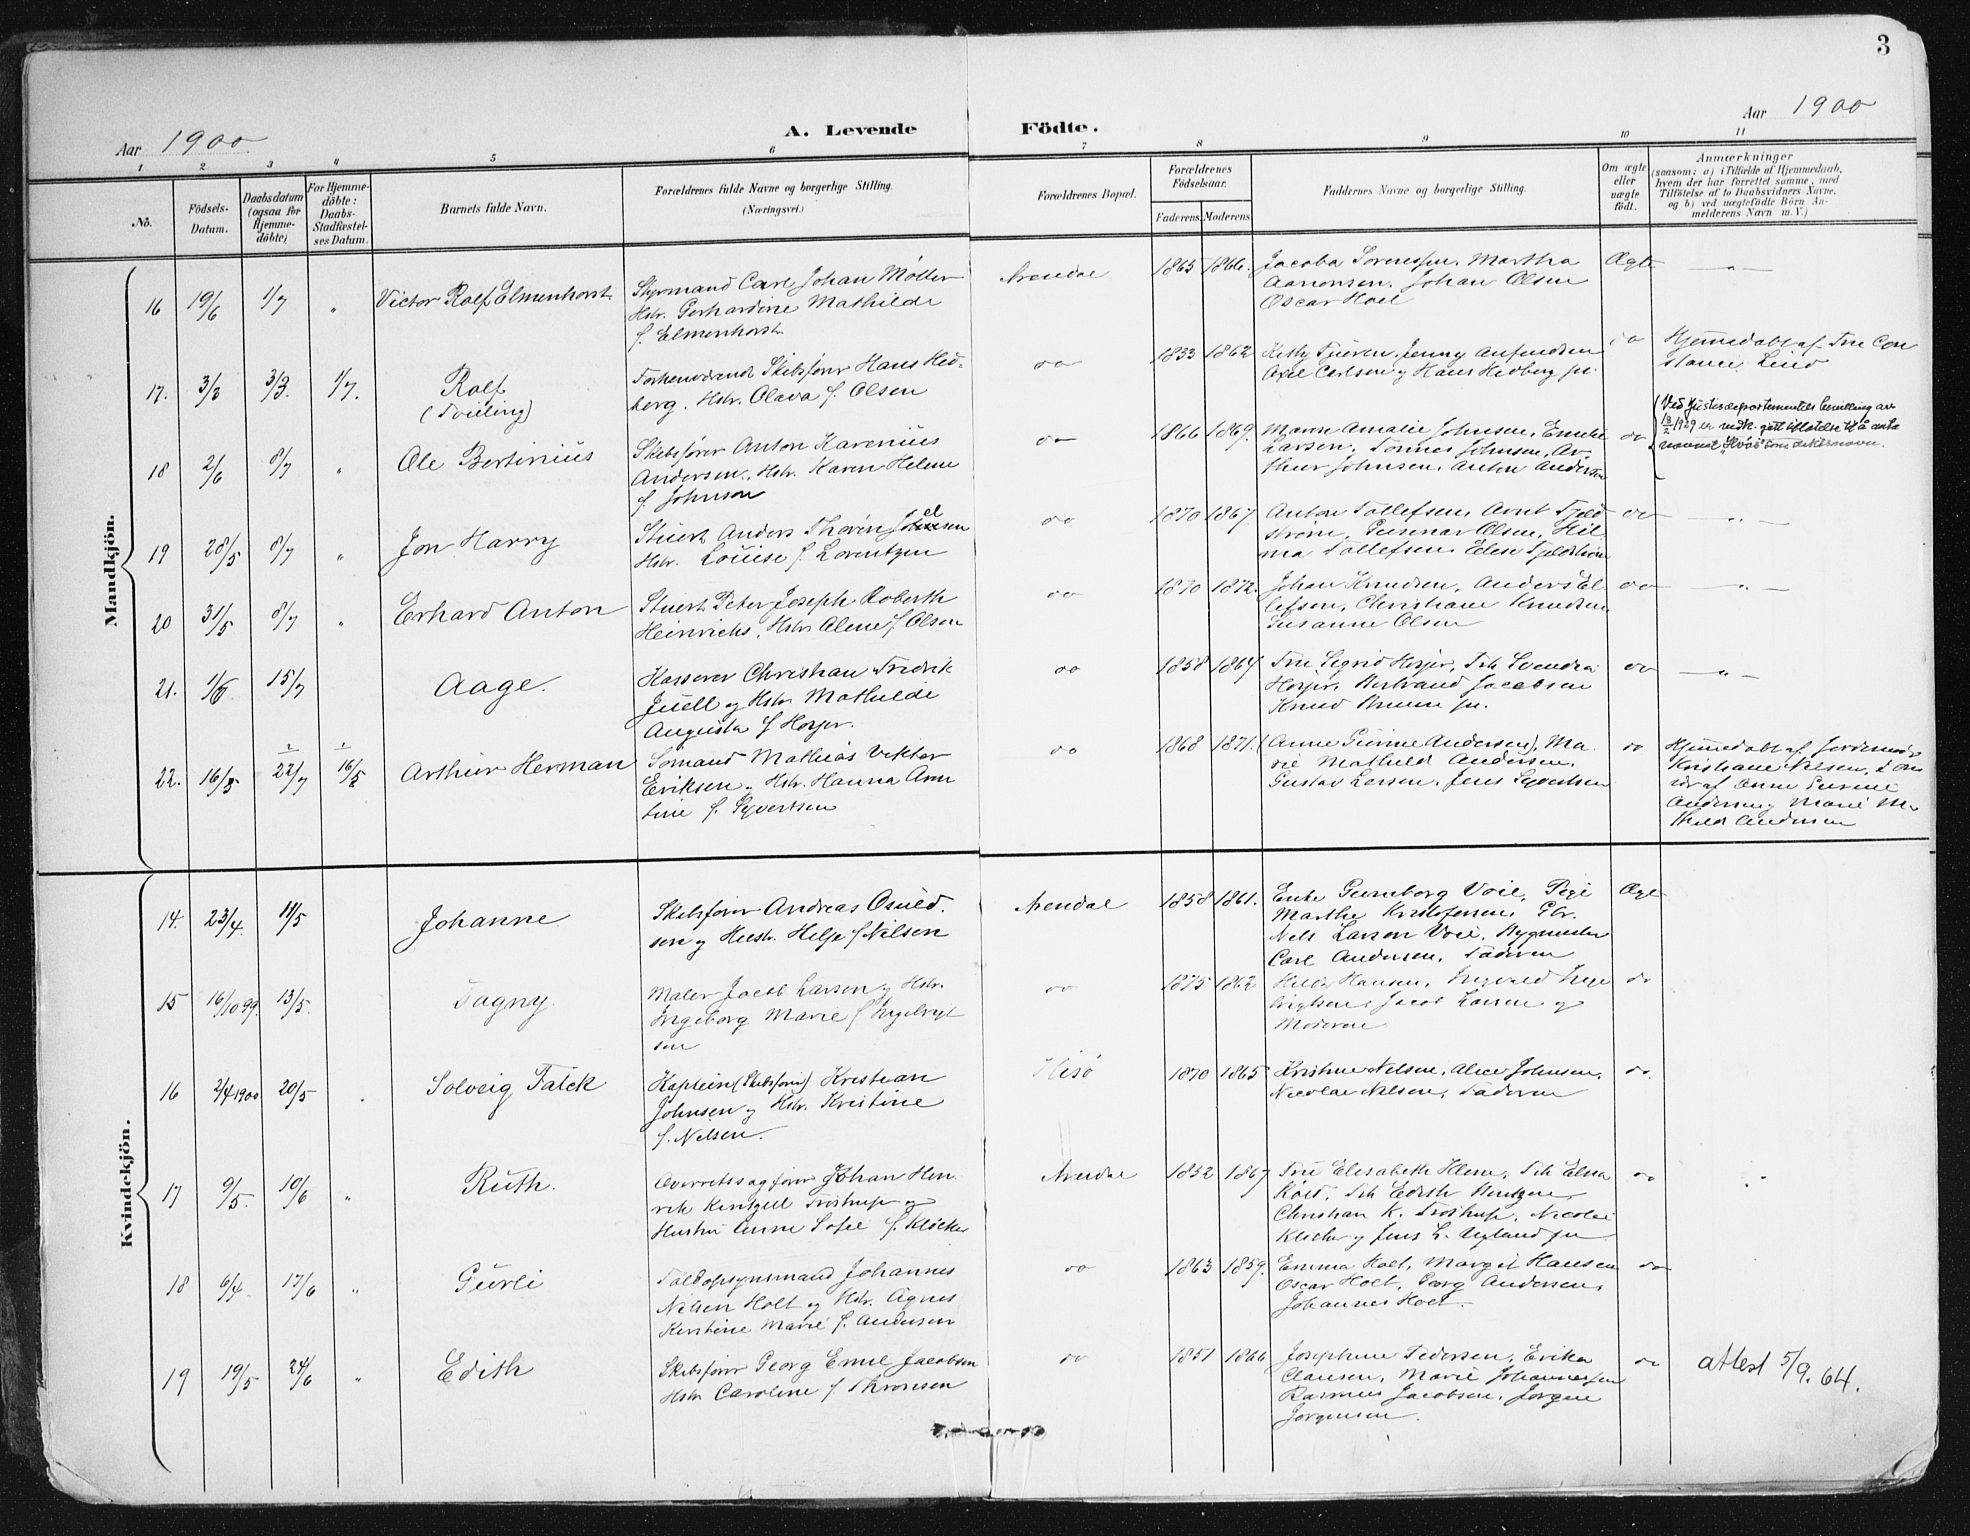 3
Aar 1900
A. Levende Födte.
Aar 1900
1 2 3 " 5 6 7 8 9 10 11
No.
Födsels-Datum.
Daabsdatum (ogsaa for Hjemme-döbte)
For Hjemme-döbte: Daabs-Stadfæstel-ses Datum.
Barnets fulde Navn.
Forældrenes fulde Navne og borgerlige Stilling.
(Næringsvei.)
Forældrenes Bopæl.
Forældrenes Födselsaar.
Faderens. Moderens.
Faddernes Navne og borgerlige Stilling.
Om ægte eller uægte födt.
Anmærkninger
(saasom: a) i Tilfælde af Hjemmedaab,
hvem der har forrettet samme, med
Tilföielse af to Daabsvidners Navne,
og b) ved uægtefödte Börn An-
melderens Navn m. V.)
Mandkjön.
16 19/6 1/7 " Victor Rolf Elmenhorst
Styrmand Carl Johan Møller
Hstr. Gerhardine Mathilde
f. Elmenhorst
Arendal 1865 1866.
Jacoba Sørenssen, Martha
Aanonsen, Johan Olsen
Oscar Hoel
Ægte — " —
17. 3/3 3/3. 1/7. Rolf
(Tvilling)
Forhenværende Skibsfører Hans Hed-
berg, Hstr. Olava f. Olsen
do 1833 1862
Axel Carlsen og Hans Hedberg jr.
do
Hjemmedøbt af Fru Con
stance Lind
18 2/6 8/7 " Ole Bertinius
Skibsfører Anton Karenius
Andersen, Hstr. Karen Helene
f. Johnson
do 1866 1869.
Maren Amalie Johnsen, Emilie
Larsen, Tønnes Johnsen, Ar-
thur Johnsen, Anton Andersen
do
(Ved Justisdepartementets bevilling av
navnet "Hvås" som slektsnavn.
19 28/5 8/7 " Jon Harry
Stuert Anders Thorén
Hstr. Louise f. Lorentzen
do 1870 1867
Anton Tollefsen, Arnt Fjeld
strøm, Gunnar Olsen, Hil-
ma Tollefsen, Elise Fjeldstrøm
do — " —
20 31/5 8/7 " Erhard Anton
Stuert Peter Joseph Roberth
Heinrichs, Hstr. Olene f. Olsen
do 1870 1872.
Johan Knudsen, Anders El
lefsen, Christiane Knudsen
Susanne Olsen
do — " —
21. 1/6 15/7 Aage.
Kasserer Christian Fredrik
Juell og Hstr. Mathilde
Augusta f. Horjer.
do 1858 1864
Fru Sigrid Horjer, Frk Svendea
Horjer, Bertrand Jacobsen
Knud Bruun jr.
do — " —
22. 16/3 22/7 16/5 Arthur Herman
Sømand Mathias Viktor
Eriksen, Hstr. Hanna Arn
tine f. Syvertsen
do 1868 1871.
(Anne Gurine Andersen), Ma-
rie Mathild Andersen,
Gustav Larsen, Jens Syvertsen
do
Hjemmedøbt af Jordemoder
Kristiane Nilsen, i
af Anne Gurine
Andersen og Marie Ma-
thilde Andersen
Kvindekjön.
14. 23/4. 11/5 Johanne
Skibsfører Andreas Osuld-
sen og Hustr. Helje f. Nilsen
Arendal 1858 1861.
Enke Gunneborg Voie, Pige
Marthe Kristofersen, Gbr.
Nels Larsen Voie, Bygmester
Carl Andersen, Faderen
Ægte
15 16/10 99. 13/5. Tagny.
Maler Jacob Larsen og Hstr.
Ingeborg Marie f. Ingebrigt
sen
do 1875 1862
Hilda Hansen, Ingevald Inge
brigtsen, Jacob Larsen og
Moderen
do
16 2/4 1900 20/5 . Solveig Falck
Kaptein (Skibsfører) Kristian
Johnsen og Hstr. Kristine
f. Nelsen.
Hisø 1870 1865
Kristine Nilsen, Alice Johnsen,
Nicolai Nilsen, Faderen
do.
17 9/5. 10/6 " Ruth.
Overretssagfører Johan Hen-
rik Frostrup og
Hustru Anne Sofie f. Kløcker
Arendal 1852 1867
Fru Elisabeth Frk Elna
Frk Edith Bentzen,
Christian K. Frostrup, Nicolai
Kløcker og Jens L. Ugland jun
do "
18 6/4 17/6 " Gurli
Toldopsynsmand Johannes
Nilsen Holt og Hstr. Agnes
Kirstine Marie f. Andersen
do 1863 1859.
Emma Holt, Margit Hansen
Oscar Holt, Georg Andersen,
Johannes Holt.
do
19 19/5 24/6 " Edith
Skibsfører Georg Emil Jacobsen
Hstr Caroline f. Thronsen
do 1851 1866
Josephine Pedersen, Erika
Clausen, Marie Johannessen
Rasmus Jacobsen, Jørgen
Jørgensen.
do
attest 5/9. 64.